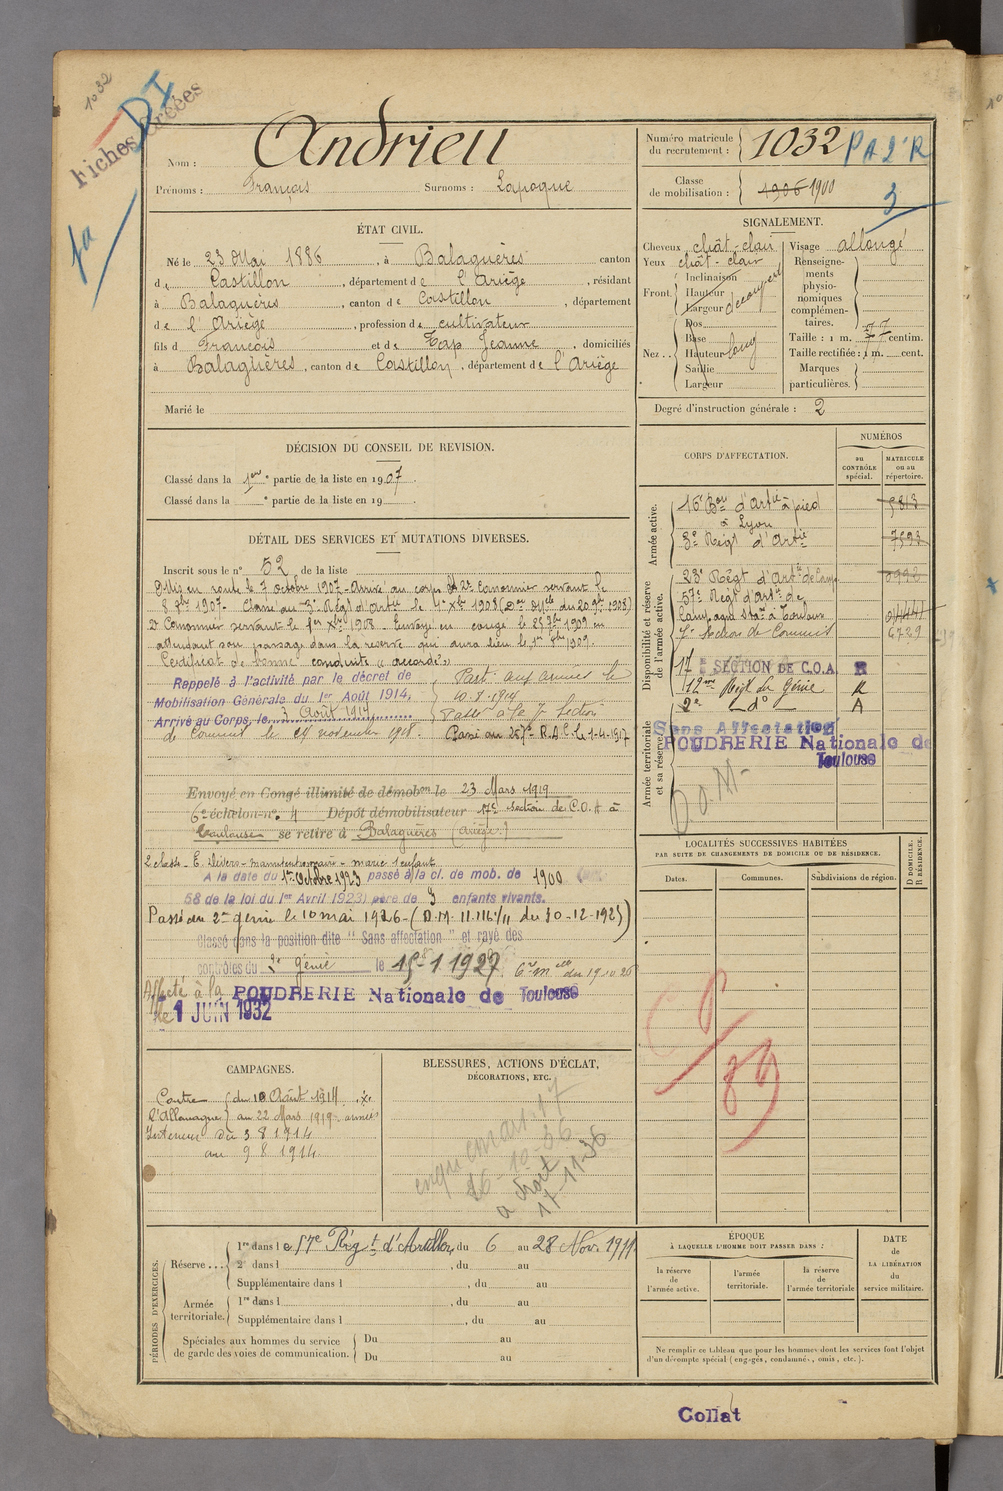 1032
DI
Fiches créées
fa
Nom : Andrieu
Prénoms : François Surnoms : Lapoque
Numéro matricule du recrutement : 1032
PA 2e R
Classe de mobilisation : 1906 1900
3
ÉTAT CIVIL.
Né le 23 Mai 1886, à Balaguères canton
de Castillon, département de l'Ariège, résidant
à Balaguères, canton de Castillon, département
de l'Ariège, profession de cultivateur
fils d François et de Tap Jeanne, domiciliés
à Balaguères, canton de Castillon, département de l'Ariège
Marié le
SIGNALEMENT.
Cheveux chât-clair
Yeux chât-clair
Front. Inclinaison
Hauteur
Largeur découvert
Nez... Dos
Base
Hauteur long
Saillie
Largeur
Visage allongé
Renseignements physionomiques complémentaires.
Taille : 1 m. 77 centim.
Taille rectifiée : 1 m. cent.
Marques particulières.
Degré d'instruction générale : 2
DÉCISION DU CONSEIL DE REVISION.
Classé dans la 1ère partie de la liste en 1907.
Classé dans la ° partie de la liste en 19
DÉTAIL DES SERVICES ET MUTATIONS DIVERSES.
Inscrit sous le n° 52 de la liste
Mis en route le 7 octobre 1907 - Arrivé au corps et 2e Canonnier servant le
8 8bre 1907. Classé au 3e Régt d'Artie le 1er Xbre 1908 (Don Mlle du 20 9bre 1908)
2e Canonnier servant le 1er Xbre 1908. Envoyé en congé le 25 7bre 1909 en
attendant son passage dans la réserve qui aura lieu le 1er 8bre 1909.
Certificat de bonne conduite "accordé"
Rappelé à l'activité par le décret de
Mobilisation Générale du 1er Août 1914,
Arrivé au Corps, le 3 Août 1914
Parti aux armées le
10-8-1914
Passé à la 7e Section
de Commis le 24 novembre 1918. Passé au 257e R.A.C. le 1-4-1917
Envoyé en Congé illimité de démobon le 23 Mars 1919
6e échelon n° 4 Dépôt démobilisateur 17e section de C.O.A à
Toulouse se retire à Balaguères (Ariège)
2 classe - E. Divers - manutentionnaire - marié 1 enfant
A la date du 1er Octobre 1923 passé à la cl. de mob. de 1900
58 de la loi du 1er Avril 1923) père de 3 enfants vivants.
Passé au 2e génie le 10 mai 1926 - (D.M. 11.116 1/11 du 30-12-1925)
Classé dans la position dite "Sans affectation" et rayé des
contrôles du 2e Génie le 15-1-1927
Affecté à la POUDRERIE Nationale de Toulouse
le 1 JUIN 1932
CORPS D'AFFECTATION.
NUMÉROS
au CONTRÔLE spécial.
MATRICULE ou au répertoire.
Armée active.
16e Bon d'Artie à pied
à Lyon
5813
3e Régt d'Artie
7593
Disponibilité et réserve de l'armée active.
23e Régt d'Artie de Camp
57e Régt d'Artie de
Campagne Stné à Toulouse
7e Section de Commis
6729
17 SECTION DE C.O.A. R
12me Régt du Génie R
2e do A
Armée territoriale et sa réserve.
Sans Affectation
POUDRERIE Nationale de
Toulouse
D.O.M.
LOCALITÉS SUCCESSIVES HABITÉES
PAR SUITE DE CHANGEMENTS DE DOMICILE OU DE RÉSIDENCE.
Dates.
Communes.
Subdivisions de région.
D DOMICILE.
R RÉSIDENCE.
CAMPAGNES.
Contre l'Allemagne du 10 Août 1914
au 22 Mars 1919 armées
Intérieur du 3 8 1914
au 9 8 1914
BLESSURES, ACTIONS D'ÉCLAT,
DÉCORATIONS, ETC.
26-10-36
a droit
17-11-36
PÉRIODES D'EXERCICES.
Réserve...
1re dans le 57e Régt d'Artillerie, du 6 au 28 Nov. 1911.
2e dans l , du au
Supplémentaire dans l , du au
Armée territoriale.
1re dans l , du au
Supplémentaire dans l , du au
Spéciales aux hommes du service de garde des voies de communication.
Du au
Du au
ÉPOQUE
À LAQUELLE L'HOMME DOIT PASSER DANS :
la réserve de l'armée active.
l'armée territoriale.
la réserve de l'armée territoriale
DATE de LA LIBÉRATION du service militaire.
Ne remplir ce tableau que pour les hommes dont les services font l'objet
d'un décompte spécial (engagés, condamnés, omis, etc.).
Collat